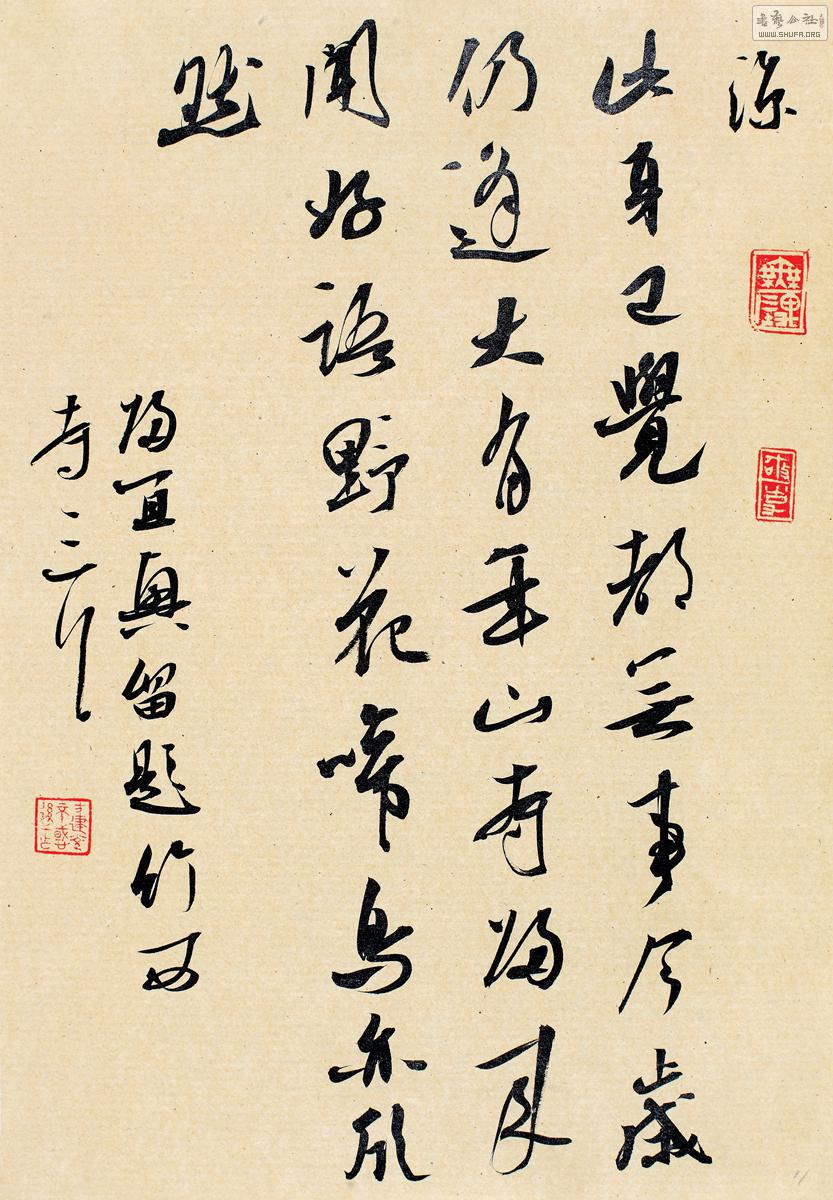 凉
此身已覺都无事今歲
仍逢大有年山寺歸来
聞好語野花啼鳥亦欣
然
歸宜興留題竹西
寺三首
書藝公社
WWW.SHUFA.ORG